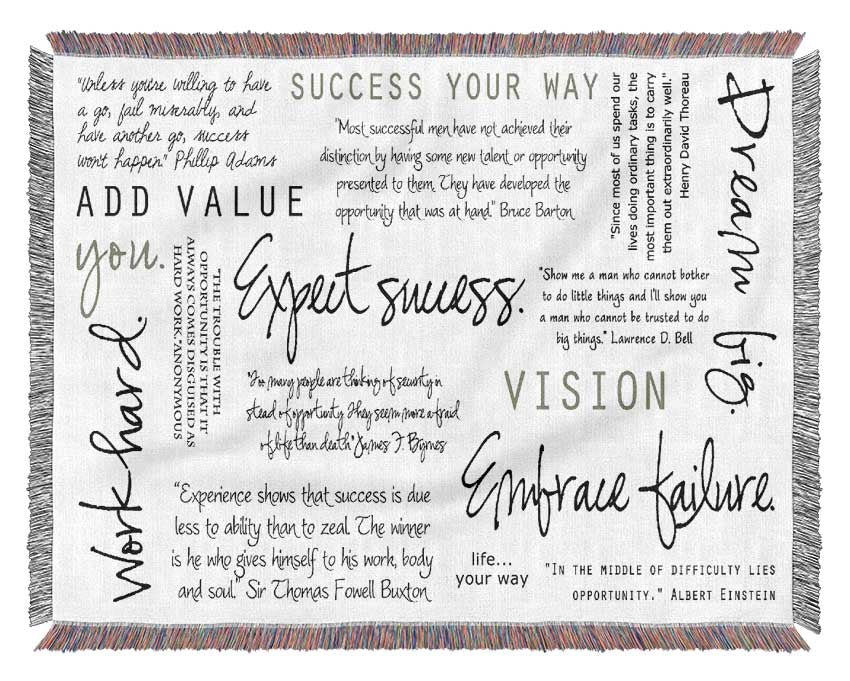 "Unless you're willing to have
a go, fail miserably, and
have another go, success
won't happen." Phillip Adams
SUCCESS YOUR WAY
"Most successful men have not achieved their
distinction by having some new talent or opportunity
presented to them. They have developed the
opportunity that was at hand." Bruce Barton
"Since most of us spend our
lives doing ordinary tasks, the
most important thing is to carry
them out extraordinarily well."
Henry David Thoreau
Dream big.
ADD VALUE
you.
"THE TROUBLE WITH
OPPORTUNITY IS THAT IT
ALWAYS COMES DISGUISED AS
HARD WORK."ANONYMOUS
Expect success.
"Show me a man who cannot bother
to do little things and I'll show you
a man who cannot be trusted to do
big things." Lawrence D. Bell
Work hard.
"Too many people are thinking of security in
stead of opportunity. They seem more afraid
of life than death." James F. Byrnes
VISION
Embrace failure.
“Experience shows that success is due
less to ability than to zeal. The winner
is he who gives himself to his work, body
and soul." Sir Thomas Fowell Buxton
life...
your way
"IN THE MIDDLE OF DIFFICULTY LIES
OPPORTUNITY." ALBERT EINSTEIN